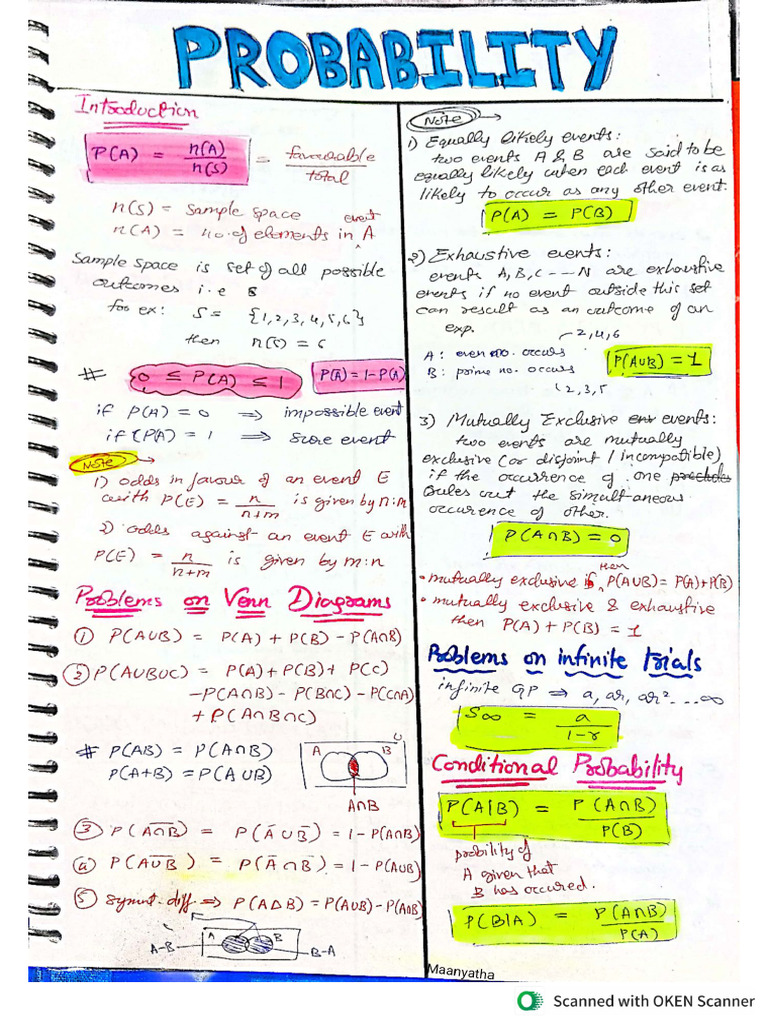 PROBABILITY
Introduction
P(A) = n(A)/n(S) = favourable/total
n(S) = Sample space
n(A) = no. of elements in event A
Sample Space is set of all possible
outcomes i.e S
for ex: S = {1,2,3,4,5,6}
then n(S) = 6
# 0 ≤ P(A) ≤ 1 P(Ā) = 1-P(A)
if P(A) = 0 ⇒ impossible event
if P(A) = 1 ⇒ sure event
Note
1) odds in favour of an event E
with P(E) = n/n+m is given by n:m
2) odds against an event E with
P(E) = n/n+m is given by m:n
Problems on Venn Diagrams
① P(A∪B) = P(A) + P(B) - P(A∩B)
② P(A∪B∪C) = P(A) + P(B) + P(C)
-P(A∩B) - P(B∩C) - P(C∩A)
+ P(A∩B∩C)
# P(AB) = P(A∩B)
P(A+B) = P(A∪B)
U
A B
A∩B
③ P(A̅∩̅B̅) = P(Ā∪B̄) = 1-P(A∩B)
④ P(A̅∪̅B̅) = P(Ā∩B̄) = 1-P(A∪B)
⑤ Symmt. diff ⇒ P(A∆B) = P(A∪B) - P(A∩B)
A B
A-B B-A
Note
1) Equally likely events:
two events A & B are said to be
equally likely when each event is as
likely to occur as any other event.
P(A) = P(B)
2) Exhaustive events:
events A, B, C --- N are exhaustive
events if no event outside this set
can result as an outcome of an
exp.
2,4,6
A: even no. occurs
P(A∪B) = 1
B: prime no. occurs
2,3,5
3) Mutually Exclusive events:
two events are mutually
exclusive (or disjoint / incompatible)
if the occurrence of one
rules out the simultaneous
occurence of other.
P(A∩B) = 0
• mutually exclusive then P(A∪B) = P(A)+P(B)
• mutually exclusive & exhaustive
then P(A) + P(B) = 1
Problems on infinite trials
infinite GP ⇒ a, ar, ar² ... ∞
S∞ = a/1-r
Conditional Probability
P(A|B) = P(A∩B)/P(B)
probility of
A given that
B has occured.
P(B|A) = P(A∩B)/P(A)
Maanyatha
Scanned with OKEN Scanner